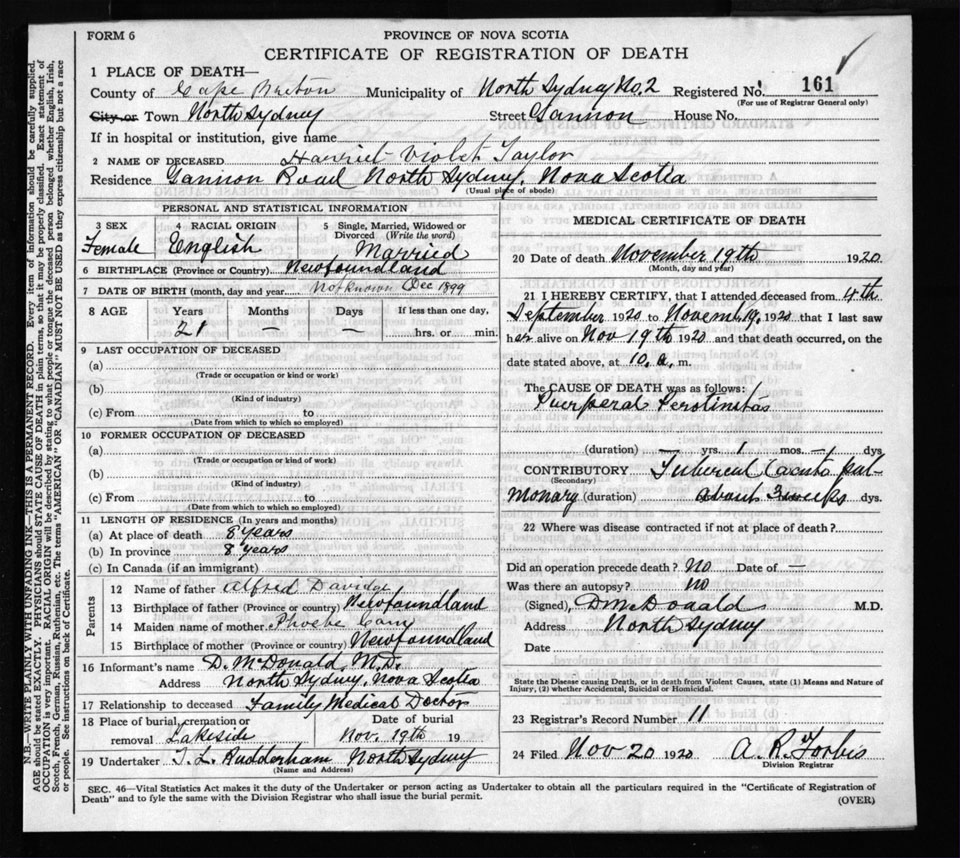 FORM 6
PROVINCE OF NOVA SCOTIA
CERTIFICATE OF REGISTRATION OF DEATH
1 PLACE OF DEATH—
County of Cape Breton Municipality of North Sydney No. 2 Registered No. 161
(For use of Registrar General only)
City or Town North Sydney Street Gannon House No.
If in hospital or institution, give name
2 NAME OF DECEASED Harriet Violet Taylor
Residence Gannon Road North Sydney, Nova Scotia
(Usual place of abode)
PERSONAL AND STATISTICAL INFORMATION
3 SEX 4 RACIAL ORIGIN 5 Single, Married, Widowed or
Divorced (Write the word)
Female English Married
6 BIRTHPLACE (Province or Country) Newfoundland
7 DATE OF BIRTH (month, day and year) Not Known Dec 1899
8 AGE Years Months Days If less than one day,
21 — — hrs. or min.
9 LAST OCCUPATION OF DECEASED
(a)
(Trade or occupation or kind or work)
(b)
(Kind of industry)
(c) From to
(Date from which to which so employed)
10 FORMER OCCUPATION OF DECEASED
(a)
(Trade or occupation or kind of work)
(b)
(Kind of industry)
(c) From to
(Date from which to which so employed)
11 LENGTH OF RESIDENCE (In years and months)
(a) At place of death 8 years
(b) In province 8 years
(c) In Canada (if an immigrant)
Parents
12 Name of father Alfred
13 Birthplace of father (Province or country) Newfoundland
14 Maiden name of mother Phoebe
15 Birthplace of mother (Province or country) Newfoundland
16 Informant's name D. McDonald, M.D.
Address North Sydney, Nova Scotia
17 Relationship to deceased Family Medical Doctor
18 Place of burial, cremation or Date of burial
removal Lakeside Nov. 19th 19
19 Undertaker J. L. Rudderham North Sydney
(Name and Address)
MEDICAL CERTIFICATE OF DEATH
20 Date of death November 19th 1920
(Month, day and year)
21 I HEREBY CERTIFY, that I attended deceased from 4th
September 1920 to Novemb. 19, 1920 that I last saw
her alive on Nov 19th 1920 and that death occurred, on the
date stated above, at 10, a, m.
The CAUSE OF DEATH was as follows:
Puerperal Perotinitas
(duration) — yrs. 1 mos. — dys
CONTRIBUTORY
(Secondary)
Pulmonary (duration) about 3 weeks dys.
22 Where was disease contracted if not at place of death?
Did an operation precede death? No Date of —
Was there an autopsy? No
(Signed), D McDonald M.D.
Address North Sydney
Date
State the Disease causing Death, or in death from Violent Causes, state (1) Means and Nature of
Injury, (2) whether Accidental, Suicidal or Homicidal.
23 Registrar's Record Number 11
24 Filed Nov 20 1920 A. R. Forbes
Division Registrar
SEC. 46—Vital Statistics Act makes it the duty of the Undertaker or person acting as Undertaker to obtain all the particulars required in the "Certificate of Registration of
Death" and to fyle the same with the Division Registrar who shall issue the burial permit.
(OVER)
N.B.—WRITE PLAINLY WITH UNFADING INK—THIS IS A PERMANENT RECORD. Every item of information should be carefully supplied.
AGE should be stated EXACTLY. PHYSICIANS should STATE CAUSE OF DEATH in plain terms, so that it may be properly classified. Exact statement of
OCCUPATION is very important. RACIAL ORIGIN will be described by stating to what people or tongue the deceased person belonged whether English, Irish,
Scotch, French, German, Russian, Ruthenian, etc. The terms "AMERICAN" OR "CANADIAN" MUST NOT BE USED as they express citizenship but not a race
or people. See instructions on back of Certificate.